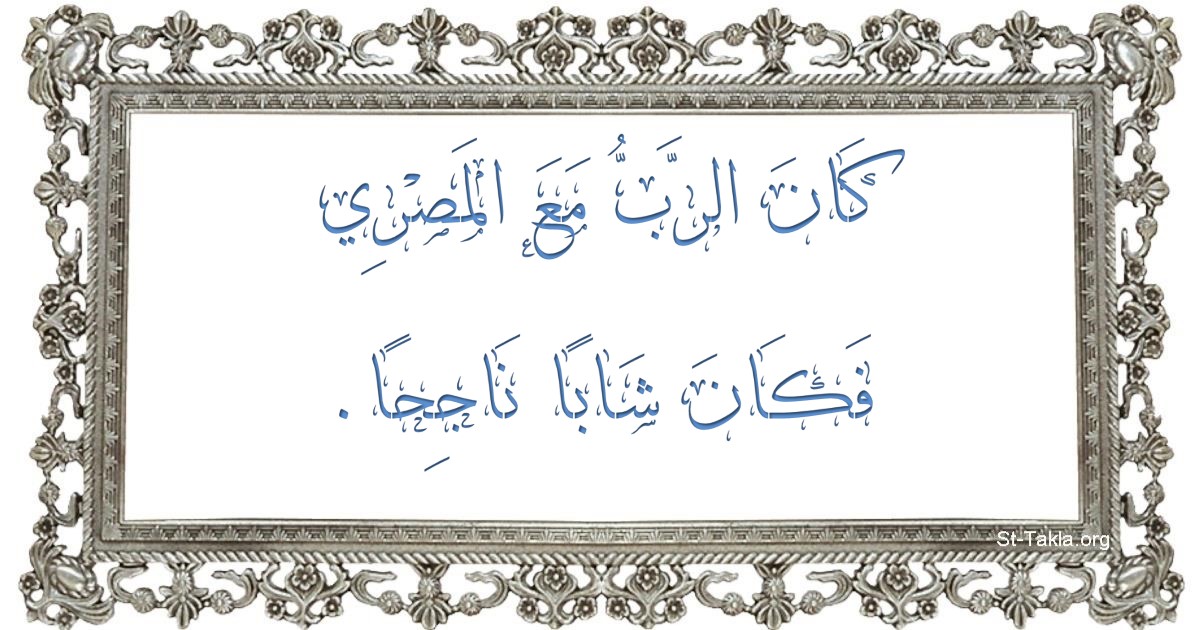 كَانَ الرَّبُّ مَعَ الْمَصْرِي
فَكَانَ شَابًا نَاجِحًا .
St-Takla.org